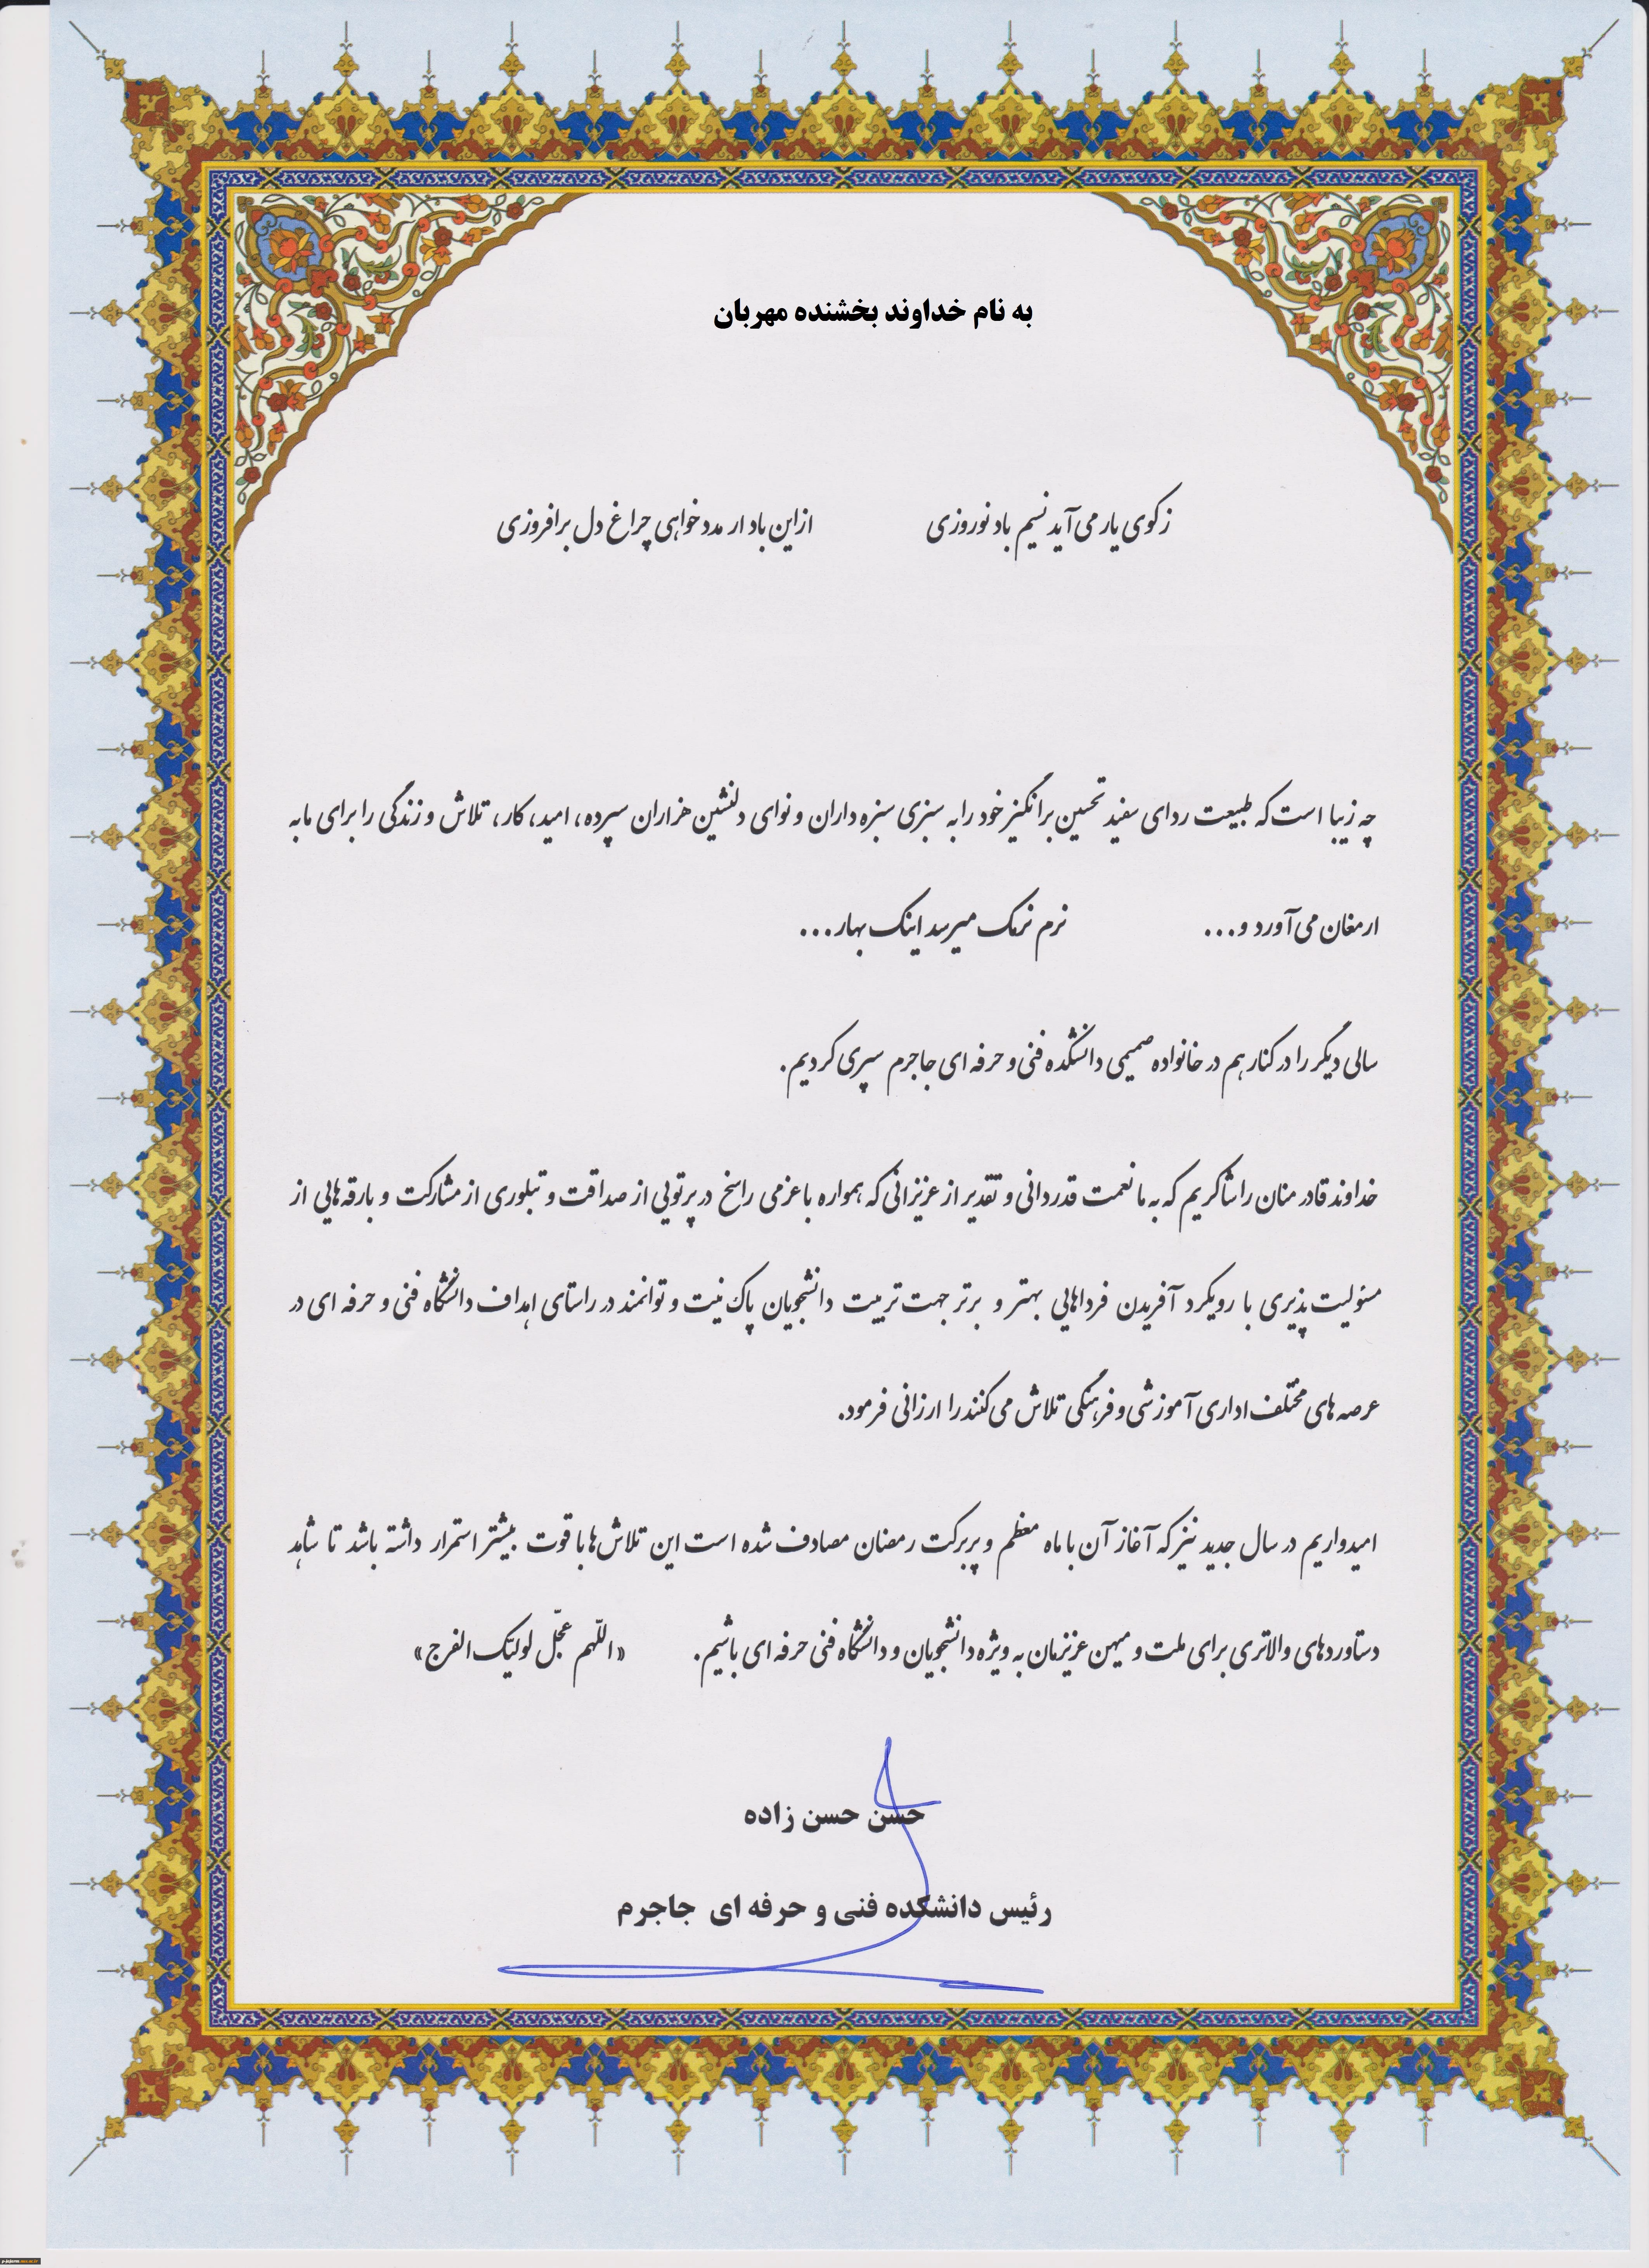 به نام خداوند بخشنده مهربان
ز کوی یار می آید نسیم باد نوروزی ازاین باد ار مدد خواهی چراغ دل برافروزی
چه زیبا است که طبیعت ردای سفید تحسین برانگیز خود را به سبزی سبزه داران و نوای دلنشین هزاران سپرده، امید، کار، تلاش و زندگی را برای ما به
ارمغان می آورد و... نرم نرمک میرسد اینک بهار...
سالی دیگر را در کنار هم در خانواده صمیمی دانشکده فنی و حرفه ای جاجرم سپری کردیم.
خداوند قادر منان را شاکریم که به ما نعمت قدردانی و تقدیر از عزیزانی که همواره با عزمی راسخ در پرتویی از صداقت و تبلوری از مشارکت و بارقه هایی از
مسئولیت پذیری با رویکرد آفریدن فرداهایی بهتر و برتر جهت تربیت دانشجویان پاک نیت و توانمند در راستای اهداف دانشگاه فنی و حرفه ای در
عرصه های مختلف اداری آموزشی و فرهنگی تلاش می کنند را ارزانی فرمود.
امیدواریم در سال جدید نیز که آغاز آن با ماه معظم و پربرکت رمضان مصادف شده است این تلاش ها با قوت بیشتر استمرار داشته باشد تا شاهد
دستاوردهای والاتری برای ملت و میهن عزیزمان به ویژه دانشجویان و دانشگاه فنی حرفه ای باشیم. «اللّهم عجّل لولیّک الفرج»
حسن حسن زاده
رئیس دانشکده فنی و حرفه ای جاجرم